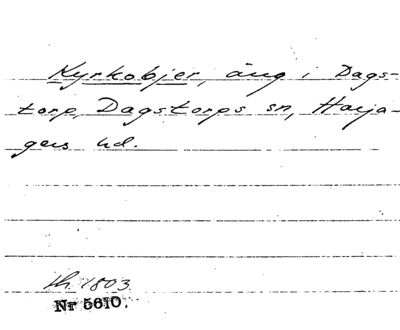 Kyrkobjer, äng i Dags-
torp, Dagstorps sn, Harja-
gers hd.
th. 1803
Nr 5610.